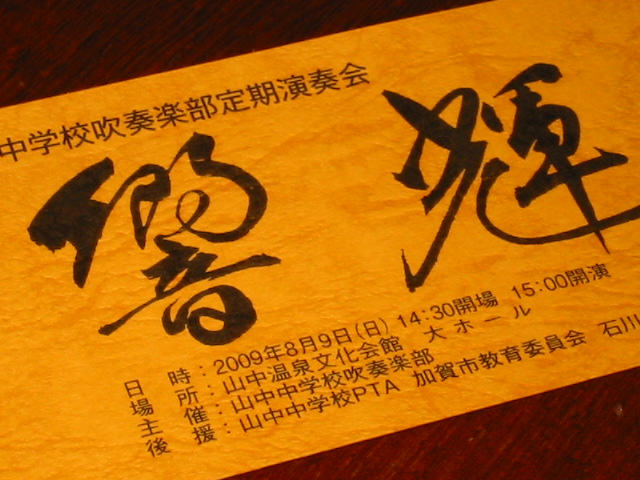 中学校吹奏楽部定期演奏会
響輝
日時：2009年8月9日(日) 14:30開場 15:00開演
場所：山中温泉文化会館 大ホール
主催：山中中学校吹奏楽部
後援：山中中学校PTA 加賀市教育委員会 石川